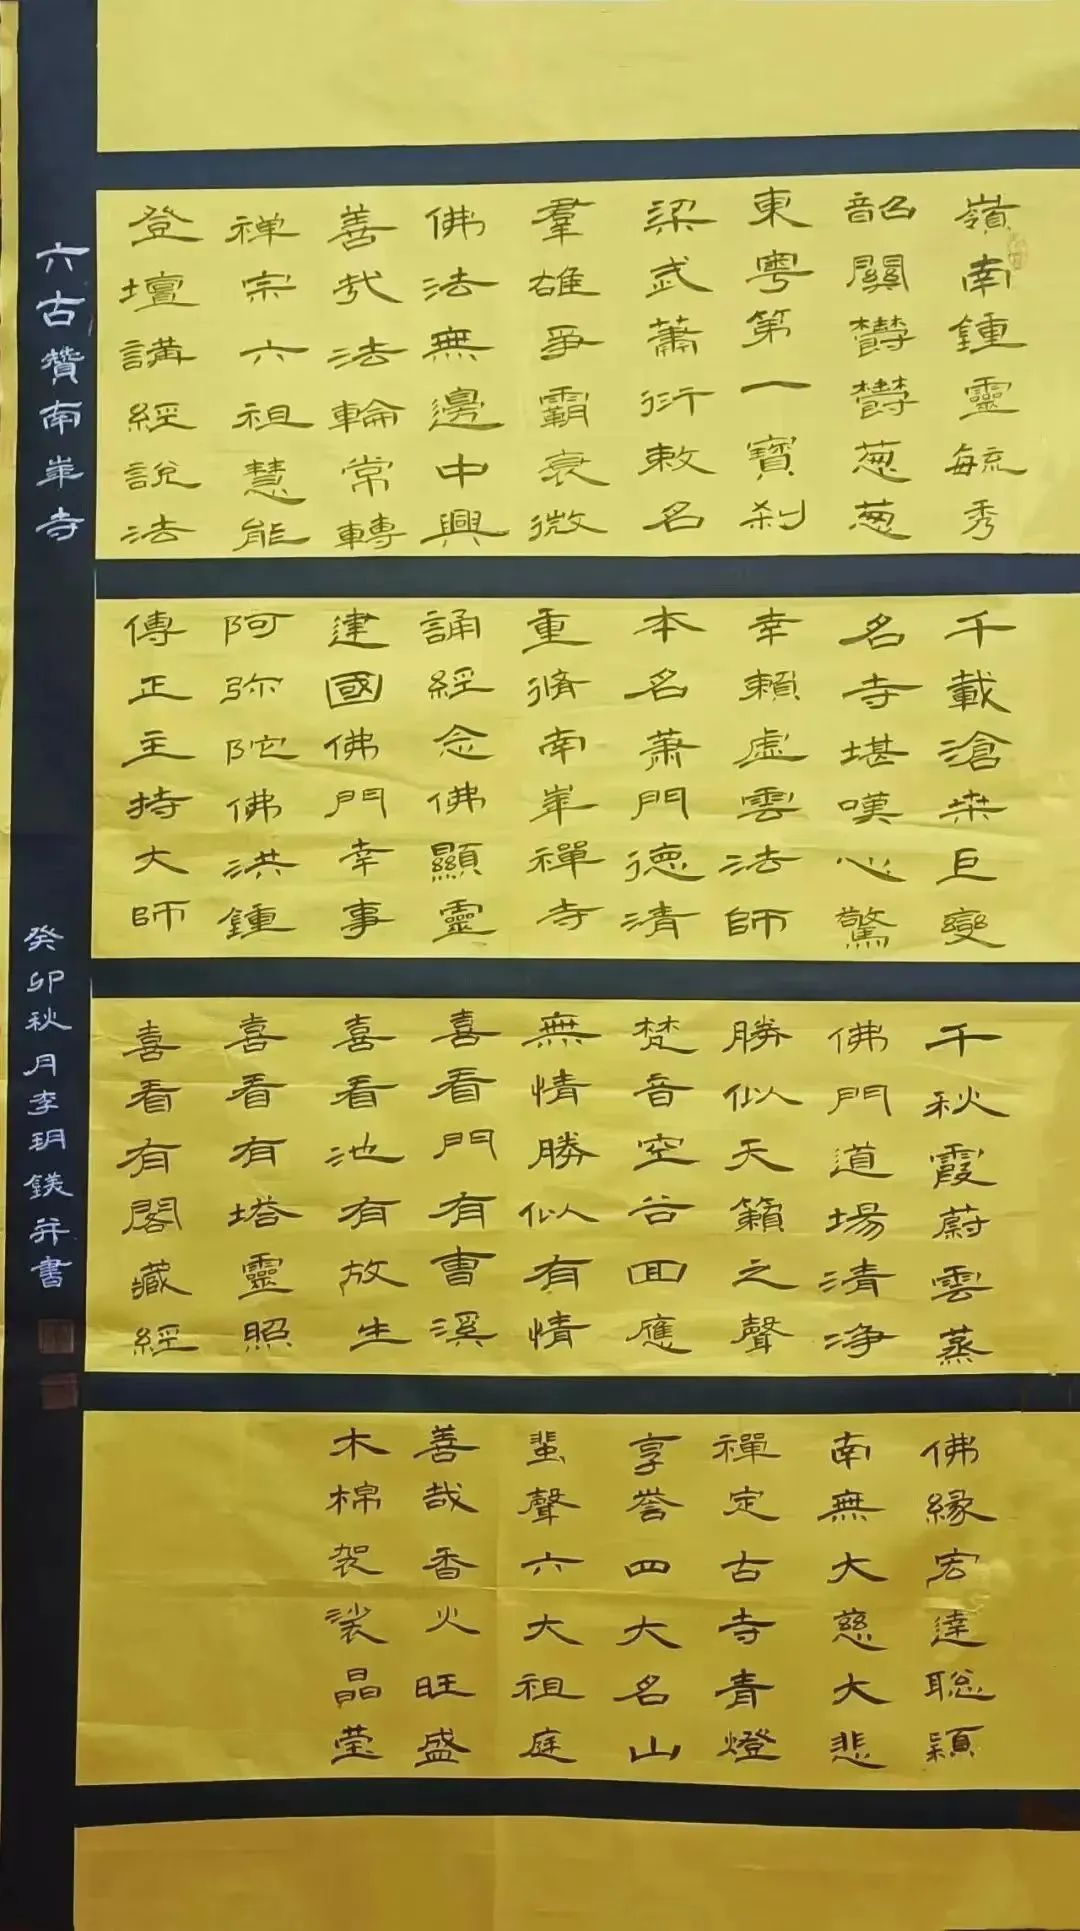 嶺南鍾靈毓秀
韶關欝欝葱葱
東粤第一寶刹
梁武蕭衍敕名
羣雄爭霸衰微
佛法無邊中興
善哉法輪常轉
禅宗六祖慧能
登壇講經説法
千載滄桒巨變
名寺堪嘆心驚
幸賴虚雲法師
本名萧門德清
重脩南崋禪寺
誦經念佛顯靈
建國佛門幸事
阿弥陀佛洪鍾
傳正主持大師
千秋霞蔚雲蒸
佛門道場清浄
勝似天籟之聲
梵音空谷囬應
無情勝似有情
喜看門有曹溪
喜看池有放生
喜看有塔靈照
喜看有閣藏經
佛緣宏達聡穎
南無大慈大悲
禪定古寺青燈
享誉四大名山
蜚聲六大祖庭
善哉香火旺盛
木棉袈裟晶莹
六古贊南崋寺
癸卯秋月李玥鎂并書